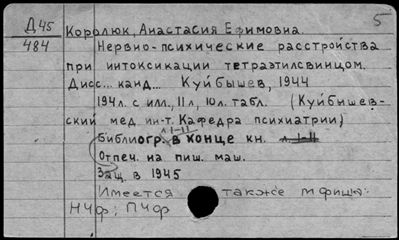 Д45
484
5
Королюк, Анастасия Ефимовна.
Нервно-психические расстройства
при интоксикации тетраэтилсвинцом.
Дисс... канд... Куйбышев, 1944
194л. с илл., 11л, 10л. табл. (Куйбышев-
ский мед. ин-т. Кафедра психиатрии)
Библиогр. л I-II в конце кн. л I-II
Отпеч. на пиш. маш.
Защ. в 1945
Имеется также мфиша:
НЧф; ПЧф